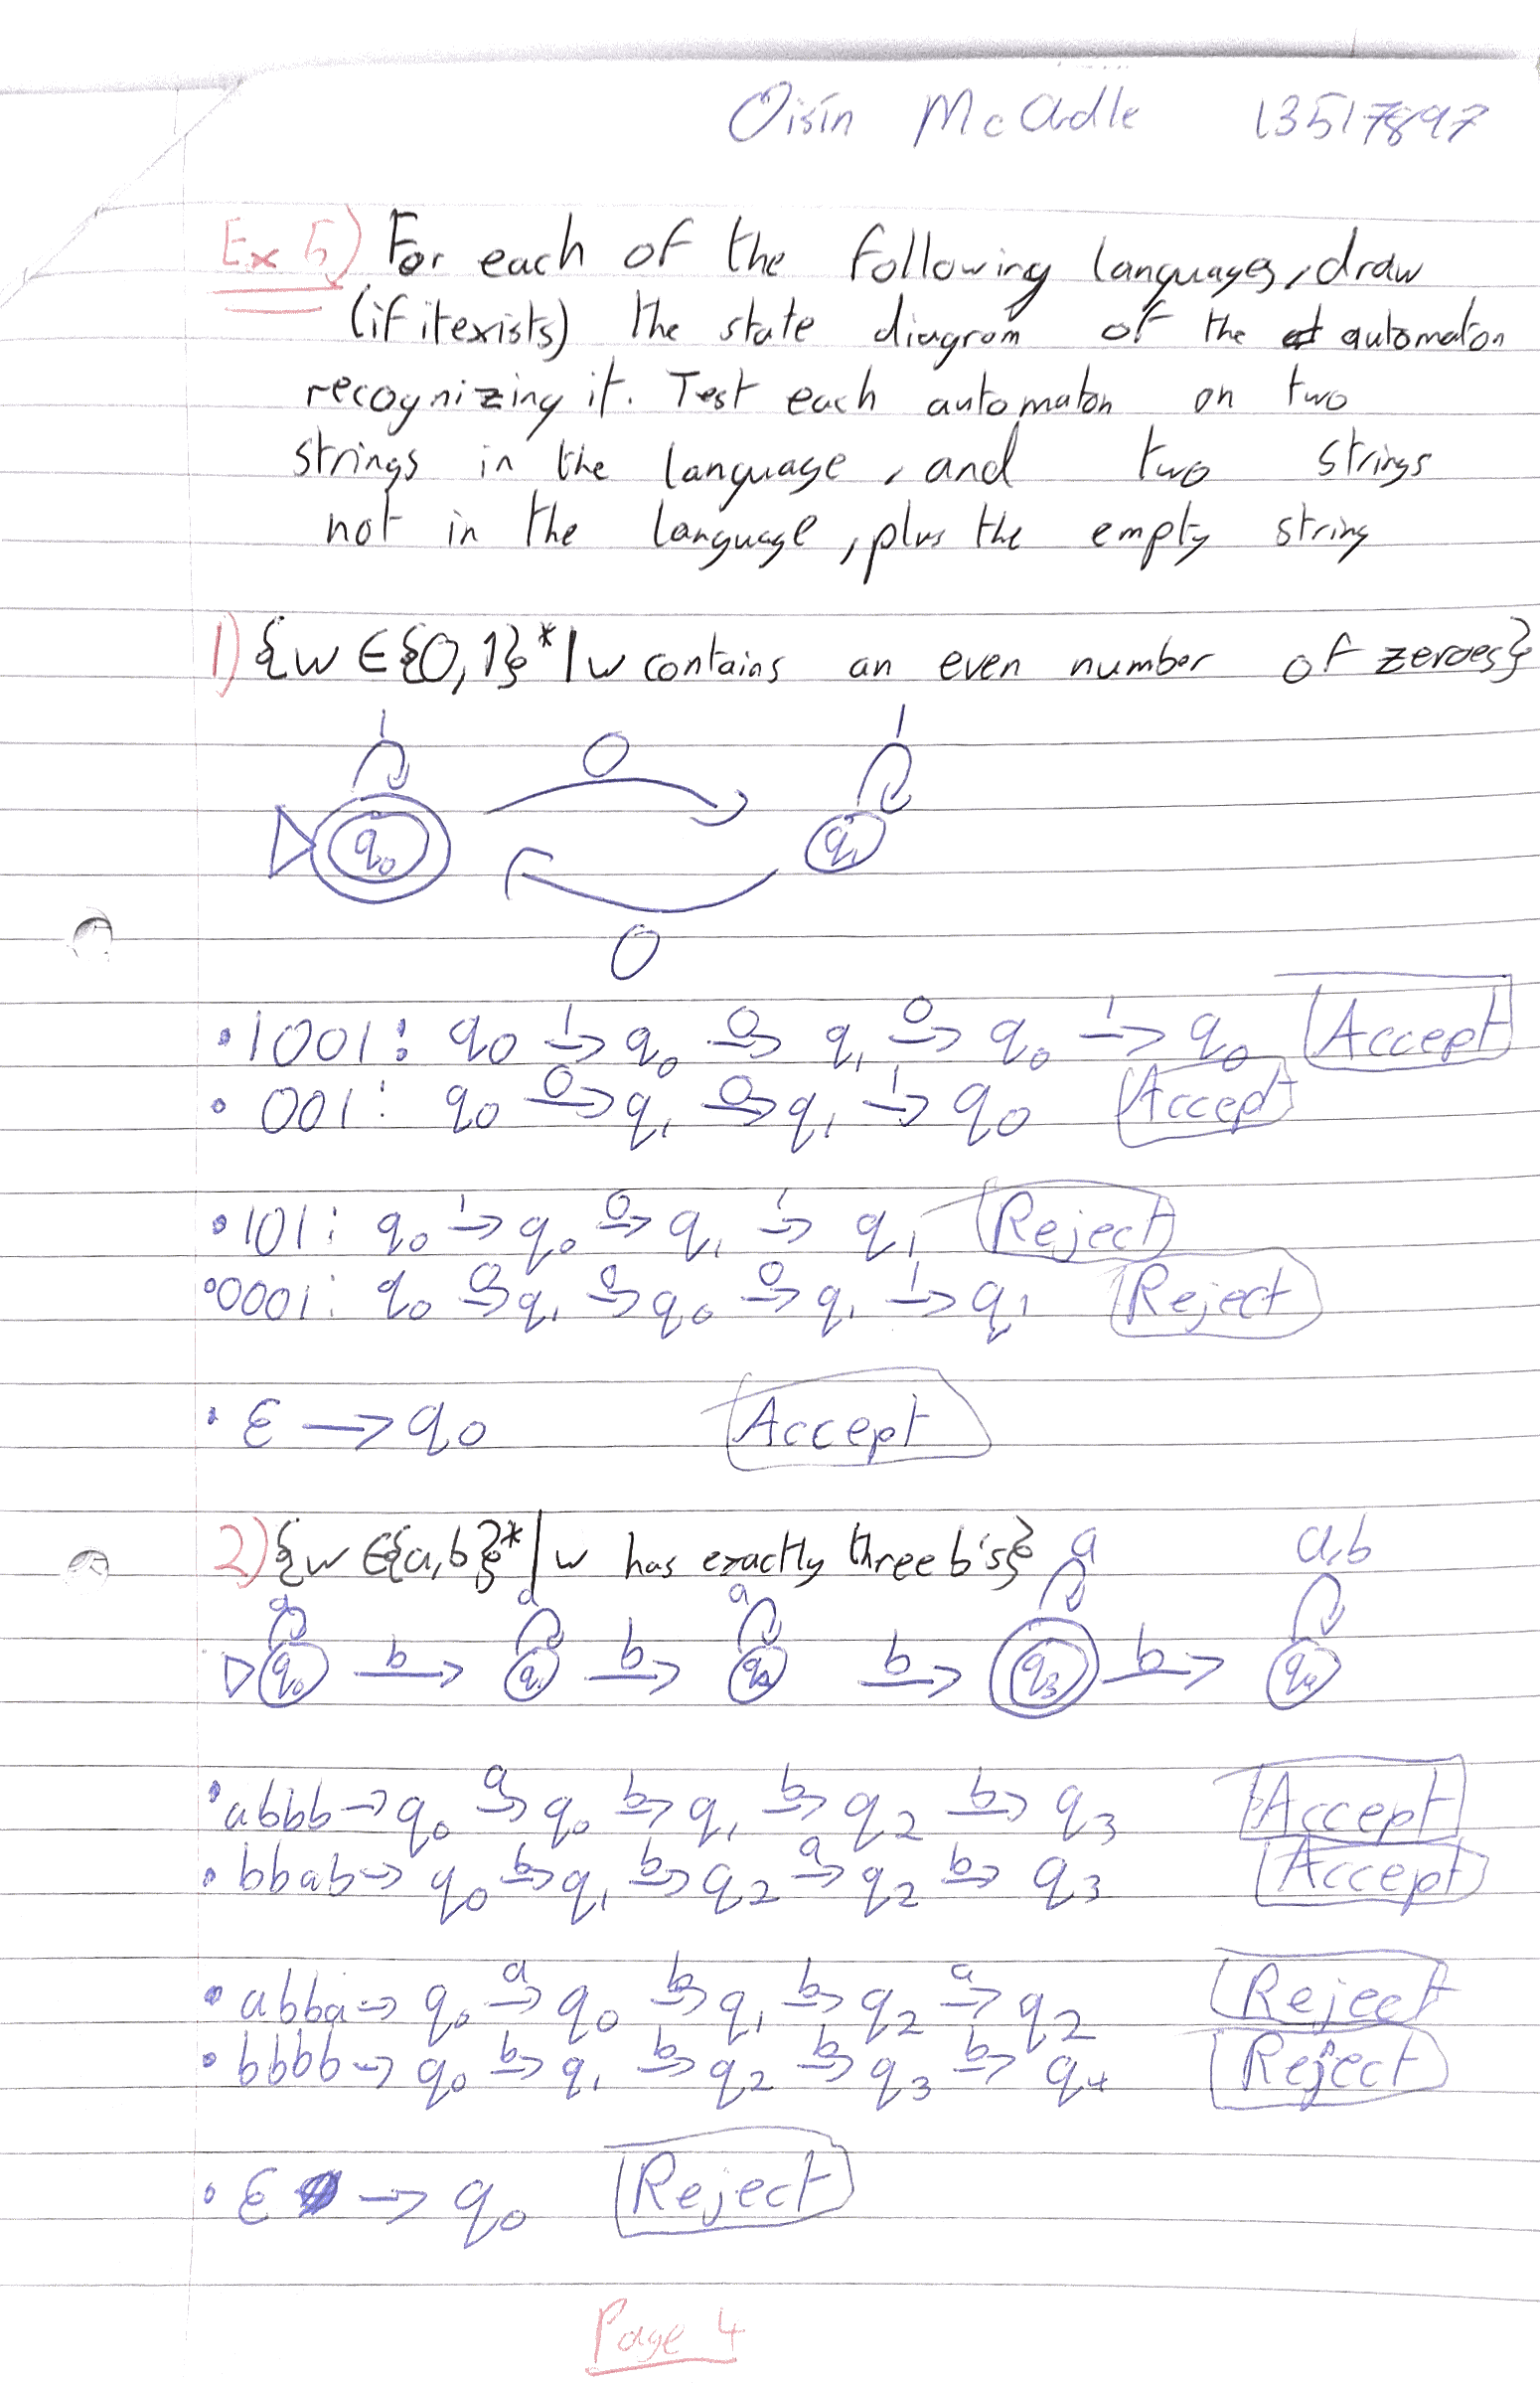 Oisín McArdle 13517897
Ex 5) For each of the following languages, draw
(if it exists) the state diagram of the automaton
recognizing it. Test each automaton on two
strings in the language, and two strings
not in the language, plus the empty string
1) {w ∈ {0,1}* | w contains an even number of zeroes}
1 0 1
q0 q1
0
• 1001: q0 1→ q0 0→ q1 0→ q0 1→ q0 Accept
• 001: q0 0→ q1 0→ q1 1→ q0 Accept
• 101: q0 1→ q0 0→ q1 1→ q1 Reject
• 0001: q0 0→ q1 0→ q0 0→ q1 1→ q1 Reject
• ε → q0 Accept
2) {w ∈ {a,b}* | w has exactly three b's}
a a a a a,b
q0 b→ q1 b→ q2 b→ q3 b→ q4
• abbb → q0 a→ q0 b→ q1 b→ q2 b→ q3 Accept
• bbab → q0 b→ q1 b→ q2 a→ q2 b→ q3 Accept
• abba → q0 a→ q0 b→ q1 b→ q2 a→ q2 Reject
• bbbb → q0 b→ q1 b→ q2 b→ q3 b→ q4 Reject
• ε → q0 Reject
Page 4